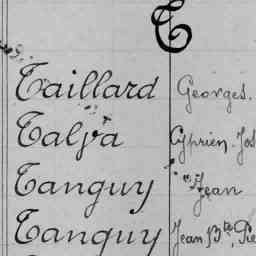 T
Taillard Georges.
Talva Cyprien. Jos
Tanguy Jean
Tanguy Jean Bte, Pie